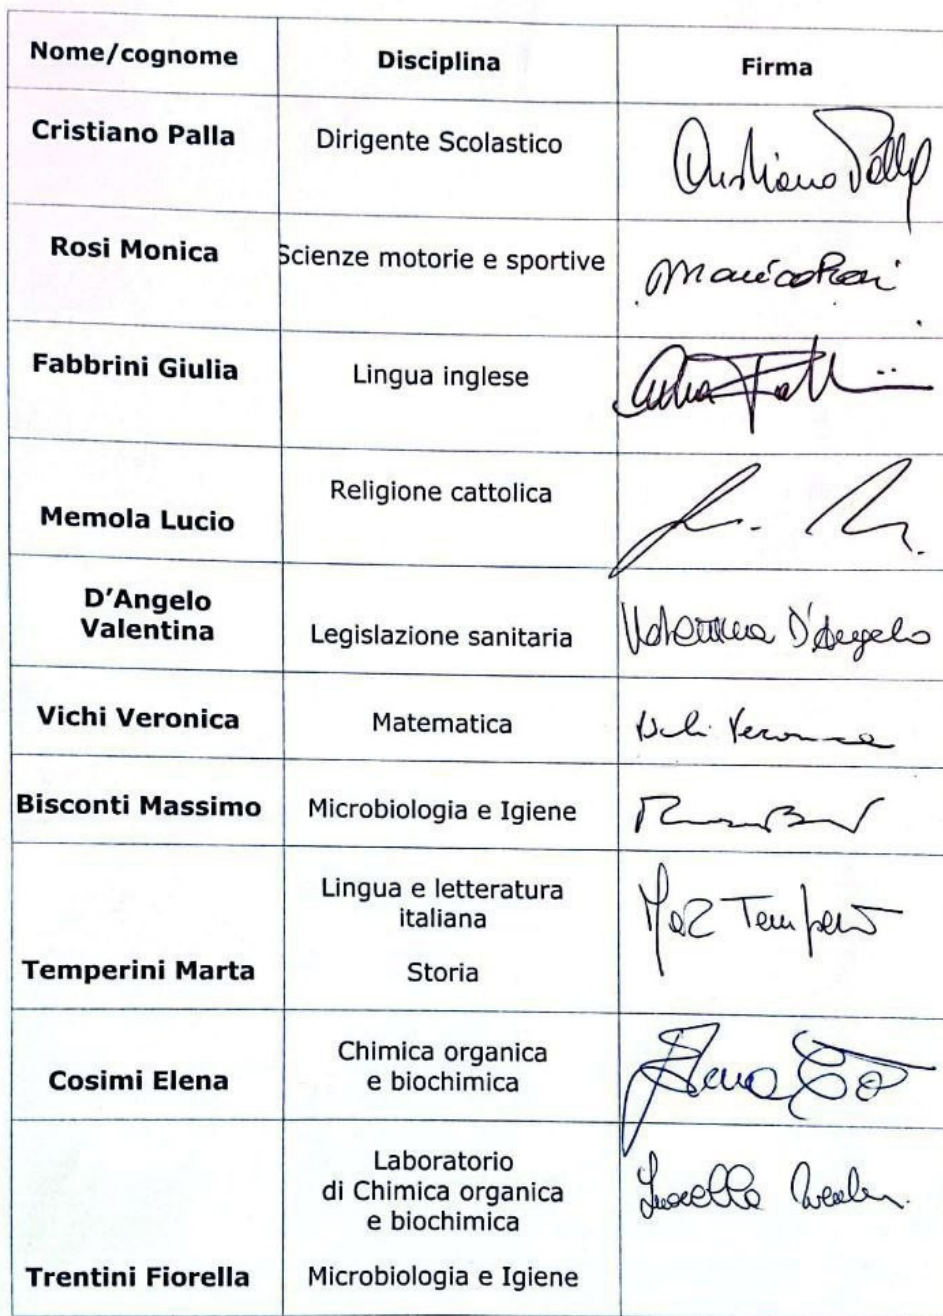 Nome/cognome Disciplina Firma
Cristiano Palla Dirigente Scolastico Cristiano Palla
Rosi Monica Scienze motorie e sportive Monica Rosi
Fabbrini Giulia Lingua inglese
Memola Lucio Religione cattolica
D'Angelo
Valentina Legislazione sanitaria Valentina D'Angelo
Vichi Veronica Matematica Vichi Veronica
Bisconti Massimo Microbiologia e Igiene
Lingua e letteratura
italiana
Temperini Marta Storia
Chimica organica
Cosimi Elena e biochimica Elena
Laboratorio
di Chimica organica
e biochimica
Trentini Fiorella Microbiologia e Igiene